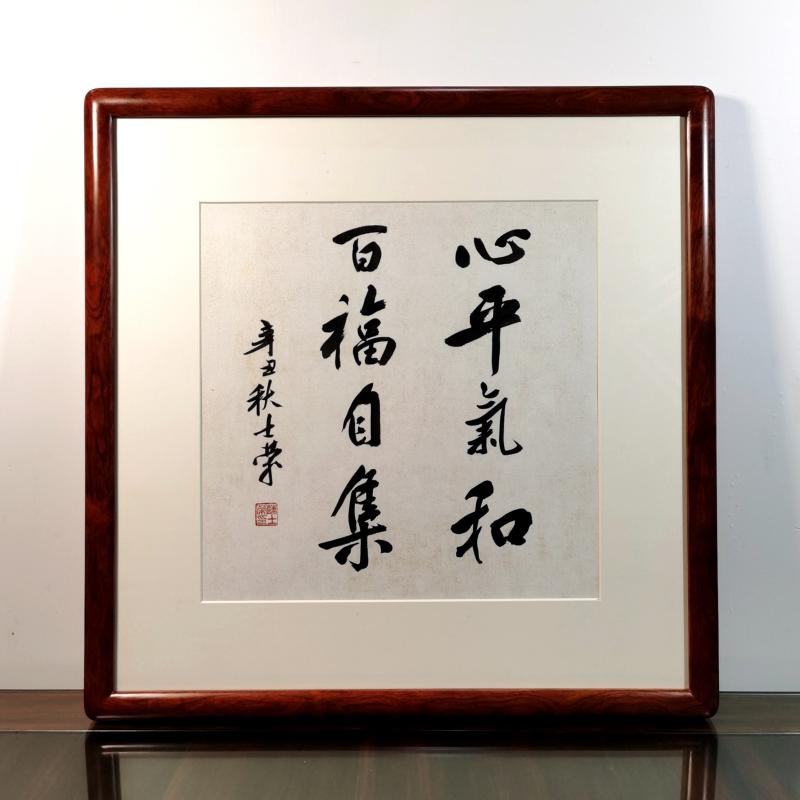 心平氣和
百福自集
辛丑秋士榮